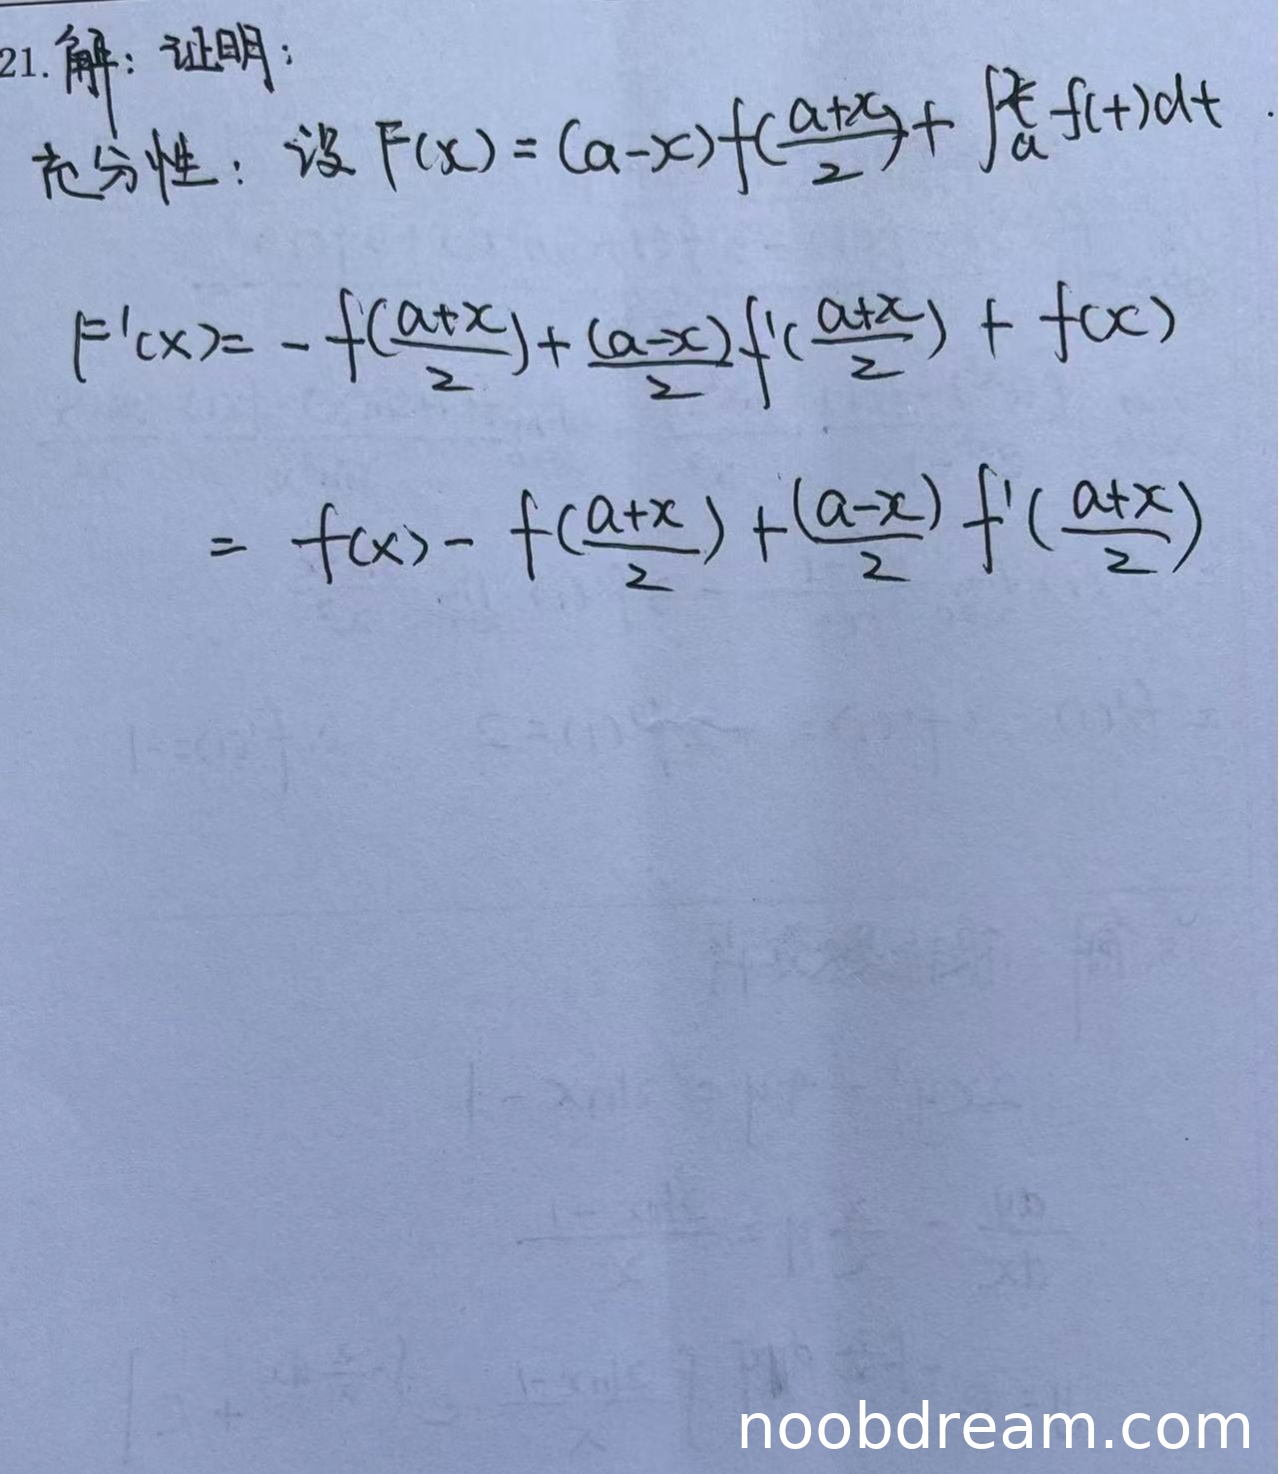 21. 解: 证明:
充分性: 设 F(x) = (a-x) f(\frac{a+x}{2}) + ∫_a^x f(t)dt .
F'(x) = - f(\frac{a+x}{2}) + \frac{(a-x)}{2} f'(\frac{a+x}{2}) + f(x)
= f(x) - f(\frac{a+x}{2}) + \frac{(a-x)}{2} f'(\frac{a+x}{2})
noobdream.com